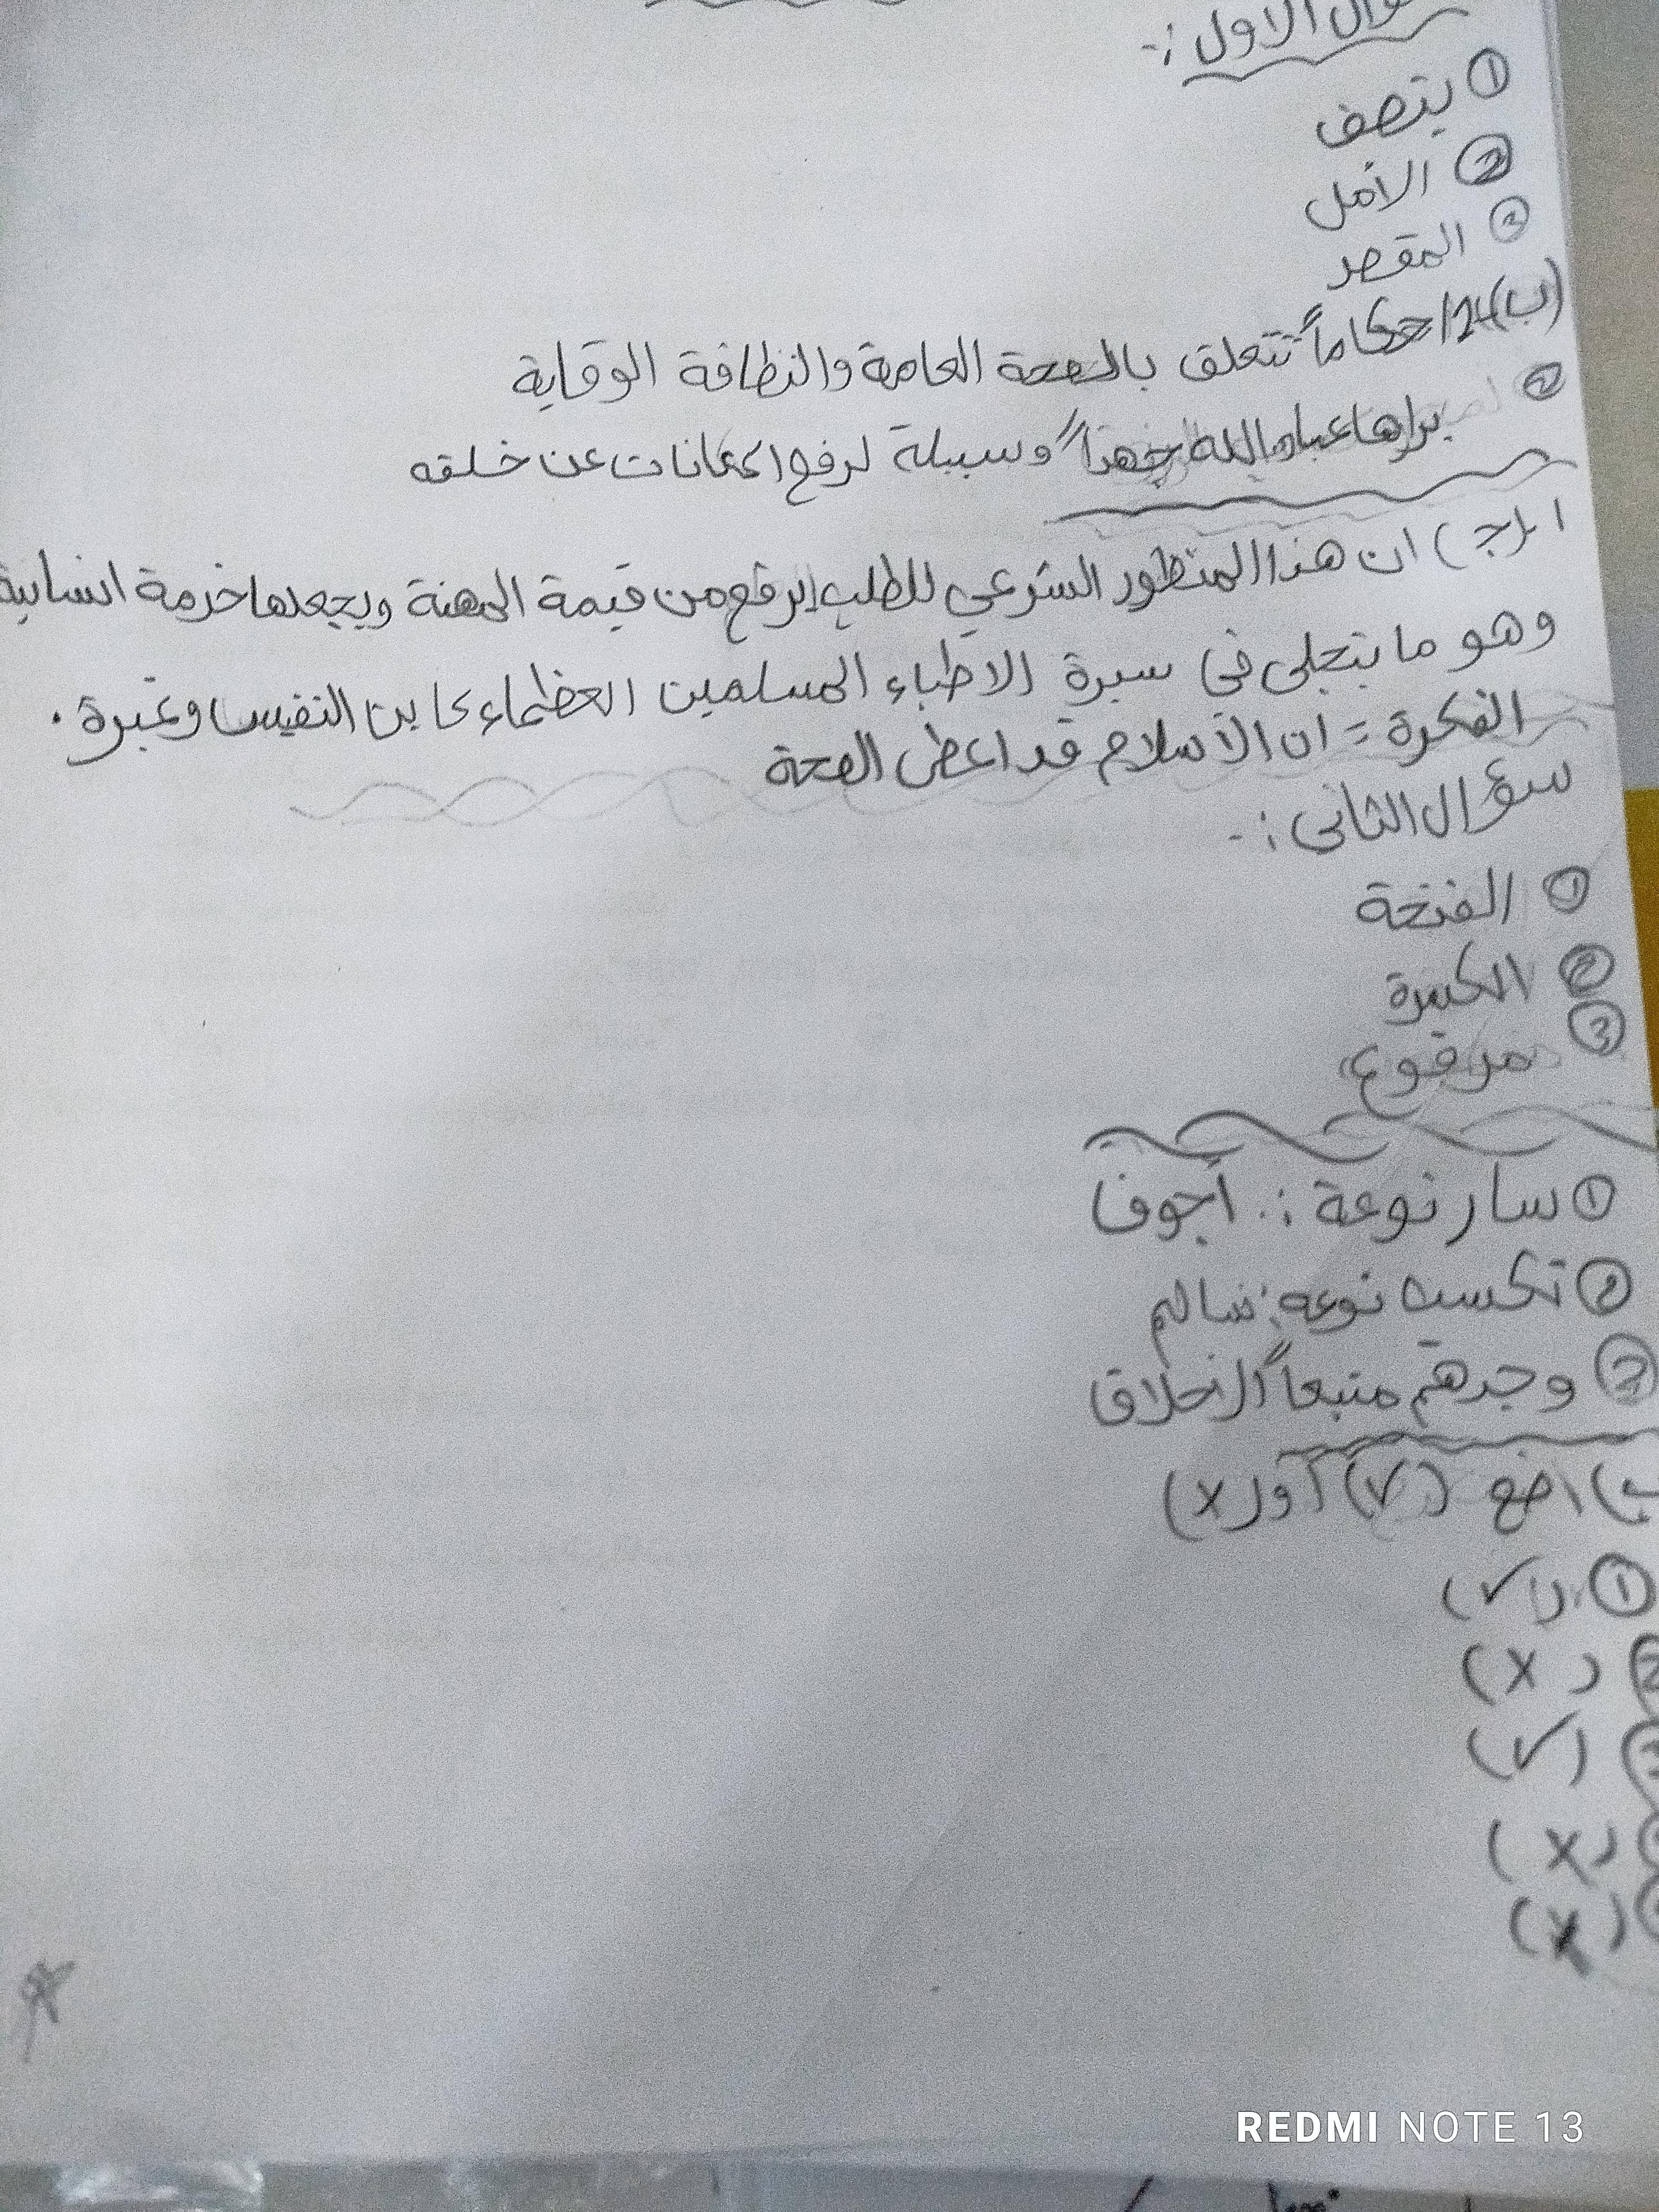 ؤال الاول :-
① يتصف
② الأمل
③ المقصد
(ب) 1/ احكاماً تتعلق بالصحة العامة والنظافة الوقاية
② يراها عباد الله جهداً وسيلة لرفع المعانات عن خلقه
ا (ج) ان هذا المنظور الشرعي للطب يرفع من قيمة المهنة ويجعلها خدمة انسانية
وهو ما يتجلى في سيرة الاطباء المسلمين العظماء كابن النفيس وغيرة .
الفكرة = ان الأسلام قد اعطى الصحة
سؤال الثاني :-
① الفتحة
② الكسرة
③ مرفوع
① سار نوعة :. أجوف
② تكسب نوعه : سالم
③ وجدهم متبعاً الاخلاق
ب) اضع (✓) أو (x)
① (✓)
② (x)
③ (✓)
(x)
(x)
REDMI NOTE 13